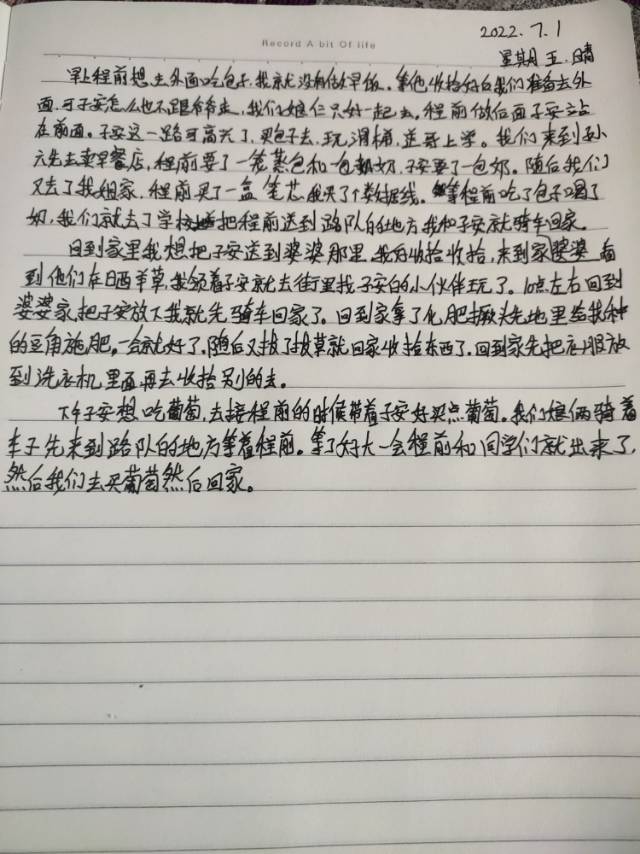 Record A bit Of life
2022.7.1
星期五.晴
早上程前想去外面吃包子,我就没有做早饭。等他收拾好白我们准备去外
面,可子安怎么也不跟爷爷走,我们娘仨只好一起去。程前做后面子安站
在前面。子安这一路可高兴了,买包子去,玩滑梯,送哥上学。我们来到
六先去卖早餐店,程前要了一笼蒸包和一包奶,子安要了一包奶。随后我们
又去了我姐家,程前买了一盒笔芯,我买了个数据线。等程前吃了包子喝了
奶,我们就去了学校把程前送到路队的地方我和子安就骑车回家。
回到家里我想把子安送到婆婆那里,我后收拾收拾,来到家婆婆看
到他们在晒羊草,我领着子安就去街里找子安的小伙伴玩了。10点左右回到
婆婆家把子安放下我就先骑车回家了。回到家拿了化肥撅头先地里给我种
的豆角施肥。一会就好了,随后又拔了拔草就回家收拾东西了,回到家先把衣服放
到洗衣机里面再去收拾别的去。
下午子安想吃葡萄,去接程前的时候带着子安好买点葡萄。我们娘俩骑着
车子先来到路队的地方等着程前。等了好大一会程前和同学们就出来了,
然后我们去买葡萄然后回家。